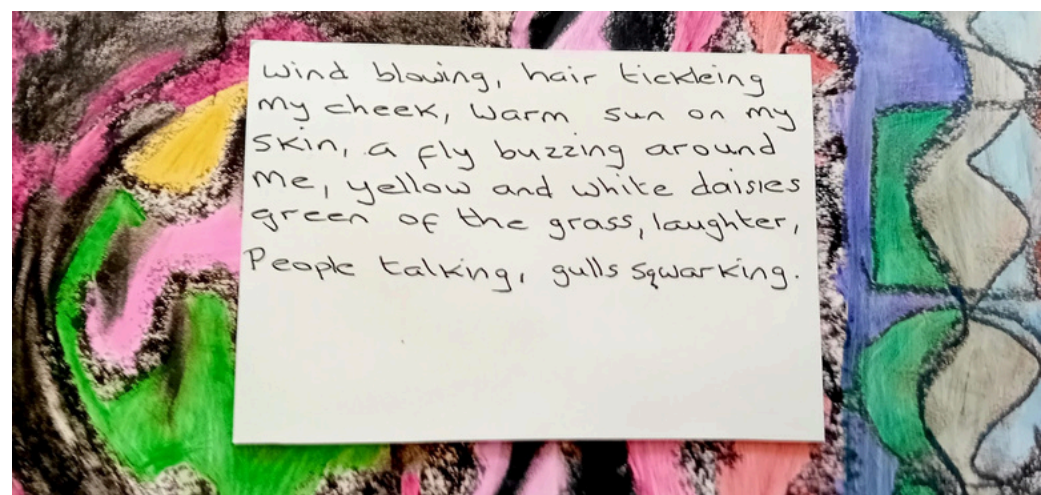 Wind blowing, hair tickleing
my cheek, Warm sun on my
skin, a fly buzzing around
me, yellow and white daisies
green of the grass, laughter,
People talking, gulls sqwarking.